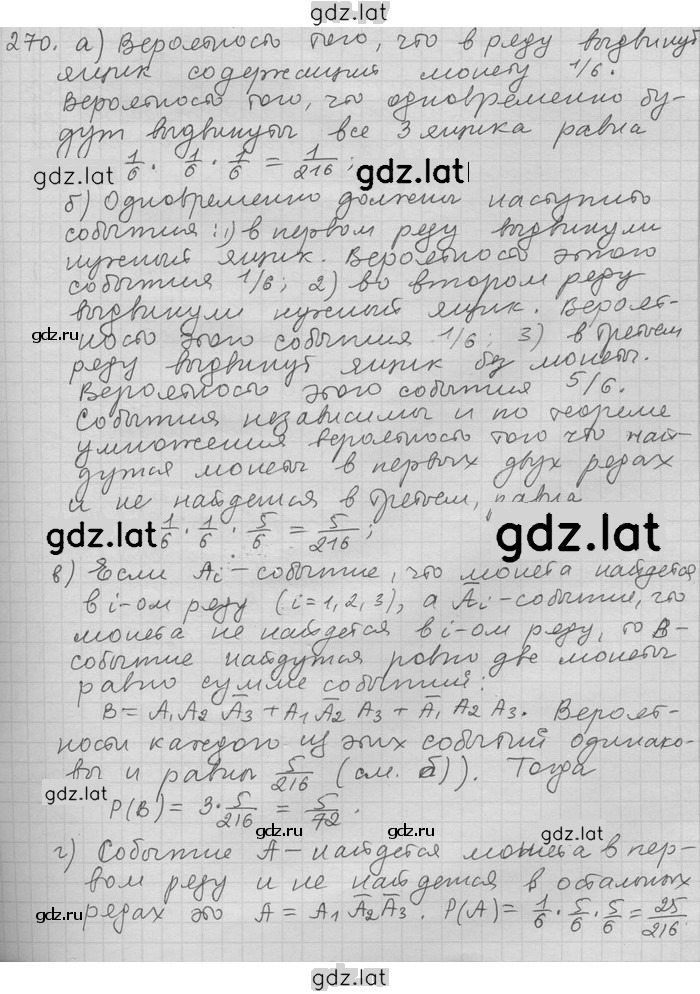 gdz.lat
270. а) Вероятность того, что в ряду выдвинут
ящик содержащий монету 1/6.
Вероятность того, что одновременно бу-
дут выдвинуты все 3 ящика равна
gdz.lat 1/6 · 1/6 · 1/6 = 1/216; gdz.lat
б) Одновременно должны наступить
события: 1) в первом ряду выдвинули
нужный ящик. Вероятность этого
события 1/6; 2) во втором ряду
выдвинули нужный ящик. Вероят-
gdz.ru ность этого события 1/6; 3) в третьем gdz.ru
ряду выдвинут ящик без монеты.
Вероятность этого события 5/6.
События независимы и по теореме
умножения вероятность того что най-
дутся монеты в первых двух рядах
и не найдется в третьем, равна
gdz.lat 1/6 · 1/6 · 5/6 = 5/216; gdz.lat
в) Если Ai – событие, что монета найдется
в i-ом ряду (i=1,2,3), а A̅i – событие, что
монета не найдется в i-ом ряду, то B –
событие найдутся ровно две монеты
равно сумме событий:
B = A₁A₂A̅₃ + A₁A̅₂A₃ + A̅₁A₂A₃. Вероят-
ности каждого из этих событий одинако-
вы и равны 5/216 (см. б)). Тогда
gdz.lat
P(B) = 3·5/216 = 5/72.
gdz.ru gdz.lat
г) Событие A – найдется монета в пер-
вом ряду и не найдется в остальных
gdz.ru рядах это A = A₁A̅₂A̅₃. P(A) = 1/6 · 5/6 · 5/6 = 25/216.
gdz.lat
gdz.lat